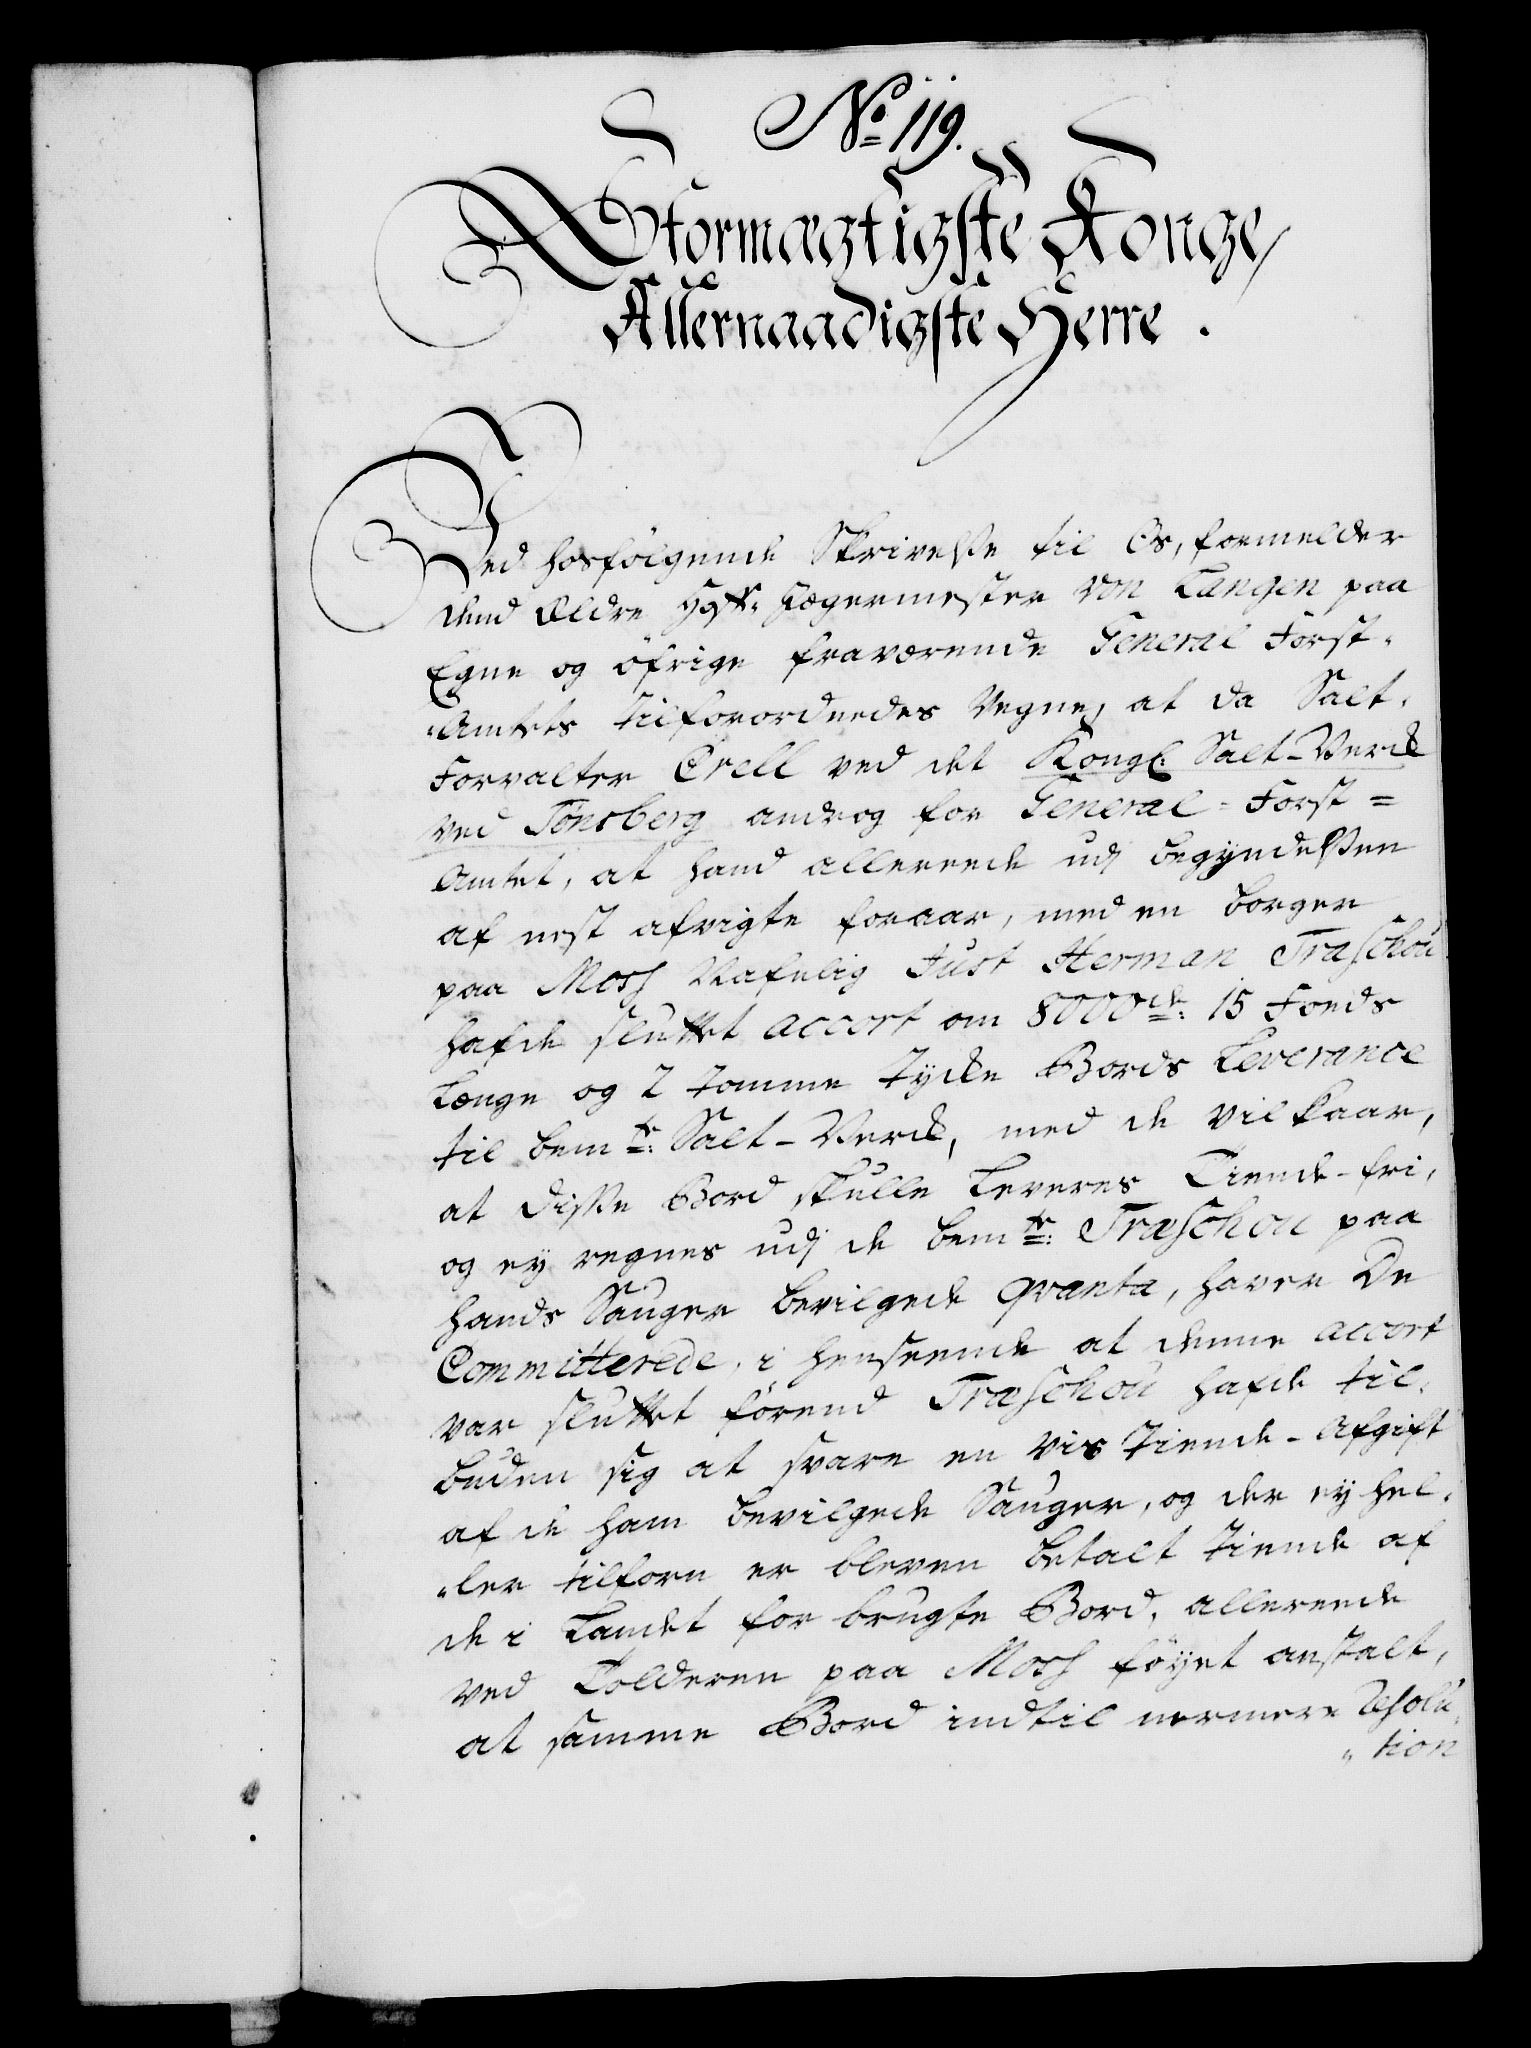 No 119.
Stormægtigste Konge,
Allernaadigste Herre.
Ved hosfølgende Skrivelse til Os, formelder
dend Eldre Hof-Jægermester von Langen paa
Egne og öfrige fraværende General Forst-
-Amtets tilforordnedes Vegne, at da Salt-
Forvalter Crell ved det Kongl: Salt-Verck
ved Tönsberg androg for General-Forst=
Amtet, at hand allereede udj begyndelsen
af nest afvigte foraar, med en borger
paa Moss Nafnlig Just Herman Traschou
hafde sluttet accort om 8000de: 15 Foeds
Længe og 2 tomme tycke Bords Leverance
til bemte: Salt-Verck, med de vilkaar,
at disse Bord skulle Leveres Tiende-fri,
og ey regnes udj de bemte: Træschou paa
hands Sauger bevilgede qvanta, haver De
Committerede, i henseende at denne accort
var sluttet förend Træschou hafde til-
buden sig at svare en vis Tiende-Afgift
af de ham bevilgede Sauger, og der ey hel-
-ler tilforn er bleven betalt tiende af
de i Landet for brugte Bord, allereede
ved Tolderen paa Moss föyet anstalt,
at samme Bord indtil nermere Resolu-
-tion